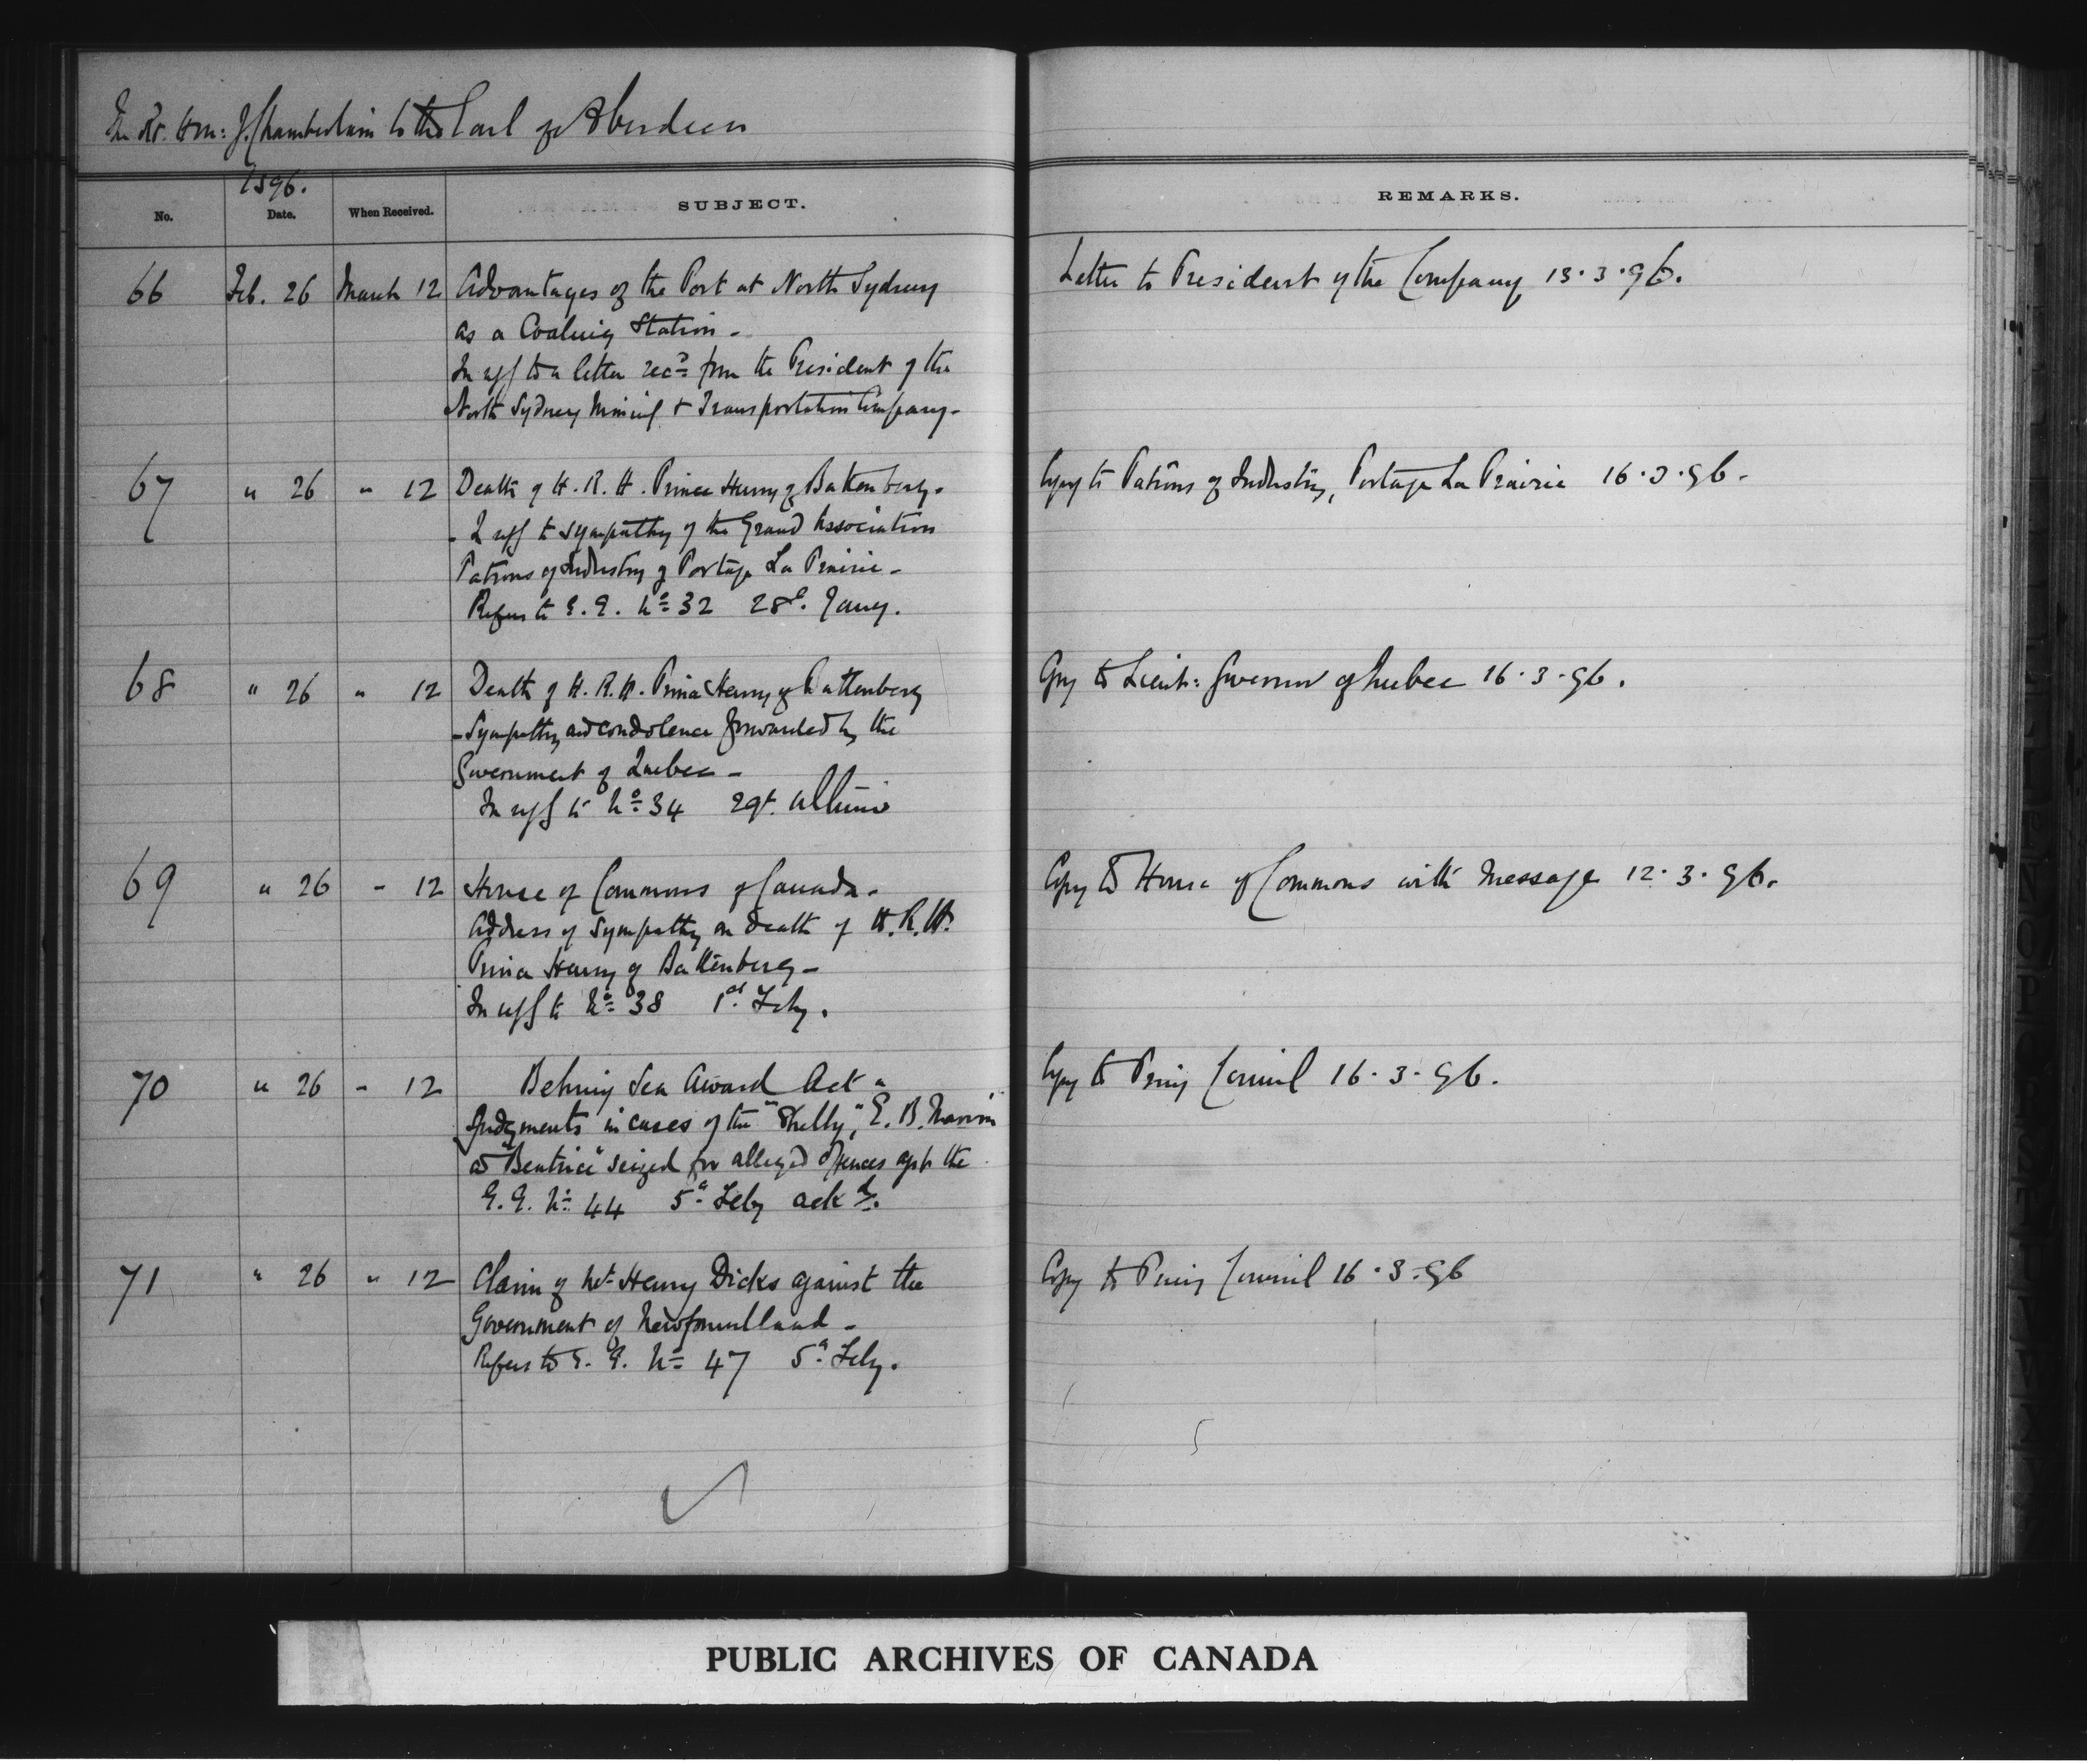 The Rt. Hon: J. Chamberlain to the Earl of Aberdeen
1896.
No. Date. When Received. SUBJECT. REMARKS.
66 Feb. 26 March 12 Advantages of the Port at North Sydney Letter to President of the Company 13.3.96.
as a Coaling Station -
In repl to a letter recd from the President of the
North Sydney Mining & Transportation Company -
67 " 26 " 12 Death of H.R.H. Prince Henry of Battenberg. Copy to Patrons of Industry, Portage La Prairie 16.3.96.
- In repl to sympathy of the Grand Association
Patrons of Industry of Portage La Prairie -
Refers to G.G. No 32 28th. Jany.
68 " 26 " 12 Death of H.R.H. Prince Henry of Battenberg Copy to Lieut: Governor of Quebec 16.3.96.
- Sympathy and condolence forwarded by the
Government of Quebec -
In repl to No 34 29t. ultimo
69 " 26 " 12 House of Commons of Canada - Copy to House of Commons with Message 12.3.96.
Address of Sympathy on death of H.R.H.
Prince Henry of Battenberg -
In repl to No 38 1st. Feby.
70 " 26 " 12 Behring Sea Award Act - Copy to Privy Council 16.3.96.
Judgments in cases of the "Shelby", E. B. Marvin
& "Beatrice" seized for alleged offences agst the
G.G. No 44 5th Feby ackd.
71 " 26 " 12 Claim of Mr Henry Dicks against the Copy to Privy Council 16.3.96
Government of Newfoundland -
Refers to G.G. No 47 5th Feby.
PUBLIC ARCHIVES OF CANADA